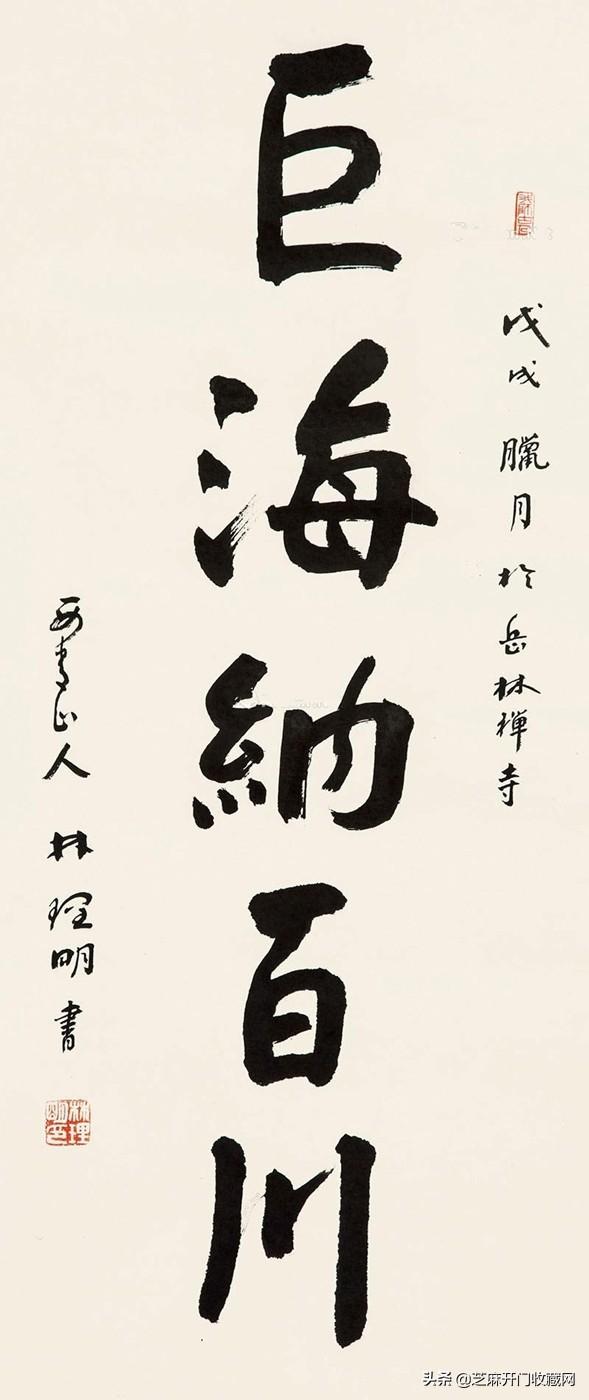 戊戌臘月於岳林禪寺
巨海納百川
青山人 林理明書
林理明印
头条 @芝麻开门收藏网